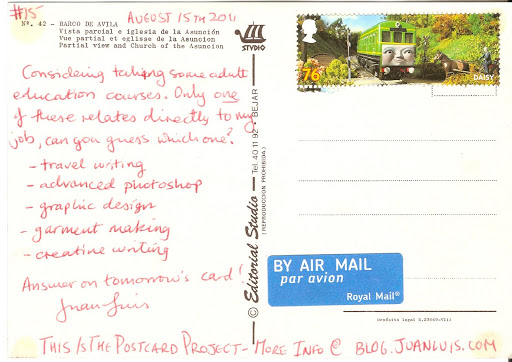 #15
AUGUST 15TH 2011
Nº. 42 - BARCO DE AVILA
Vista parcial e iglesia de la Asunción
Vue partial et eglisse de la Asuncion
Partial view and Church of the Asuncion
STVDIO
Considering taking some adult
education courses. Only one
of these relates directly to my
job, can you guess which one?
- travel writing
- advanced photoshop
- graphic design
- garment making
- creative writing
Answer on tomorrow's card!
Juan Luis
© Editorial Studio - Tel. 40 11 92 - BEJAR
(REPRODUCCION PROHIBIDA)
76
DAISY
BY AIR MAIL
par avion
Royal Mail®
THIS IS THE POSTCARD PROJECT - MORE INFO @ BLOG.JUANLUIS.COM